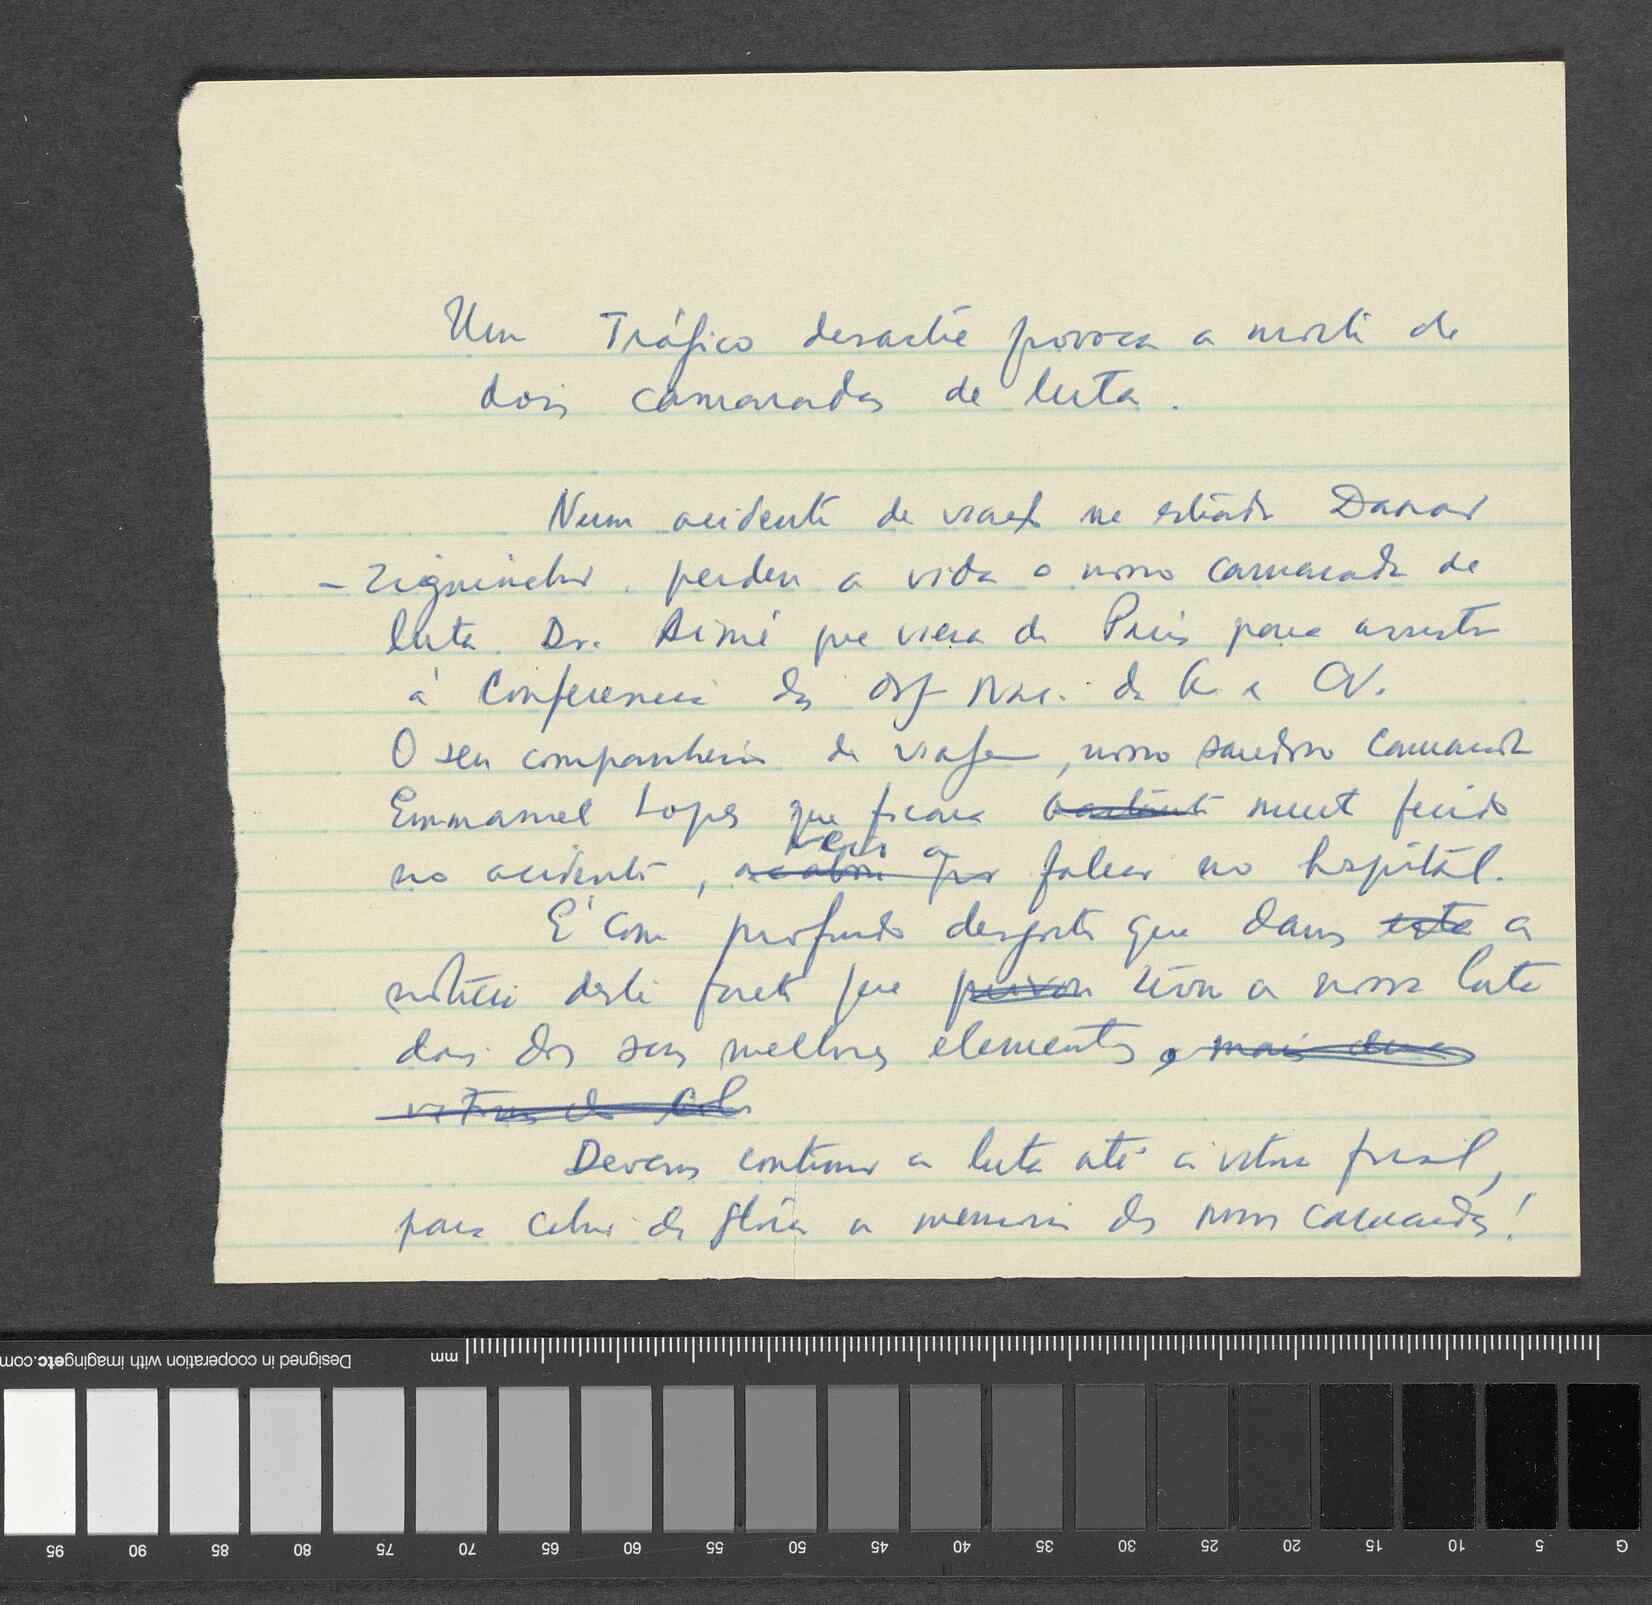 Um Trágico desastre provoca a morte de
dois camaradas de luta.
Num acidente de viação na estrada Dakar
- Ziguinchor perdeu a vida o nosso camarada de
luta Dr. Aimé que viera de Paris para assistir
à Conferencia das Org Nac. da G. e CV.
O seu companheiro de viagem, nosso saudoso camarada
Emmanuel Lopes que ficara bastante muito ferido
veio a
no acidente, acabou por falecer no hospital.
É com profundo desgosto que damos esta a
notícia deste facto que privou tirou a nossa luta
dois dos seus melhores elementos, mais duas
vítimas do Col.
Devemos continuar a luta até à vitória final,
para cobrir de glória a memória dos nossos camaradas!
Designed in cooperation with imagingetc.com
mm
95 90 85 80 75 70 65 60 55 50 45 40 35 30 25 20 15 10 5 G